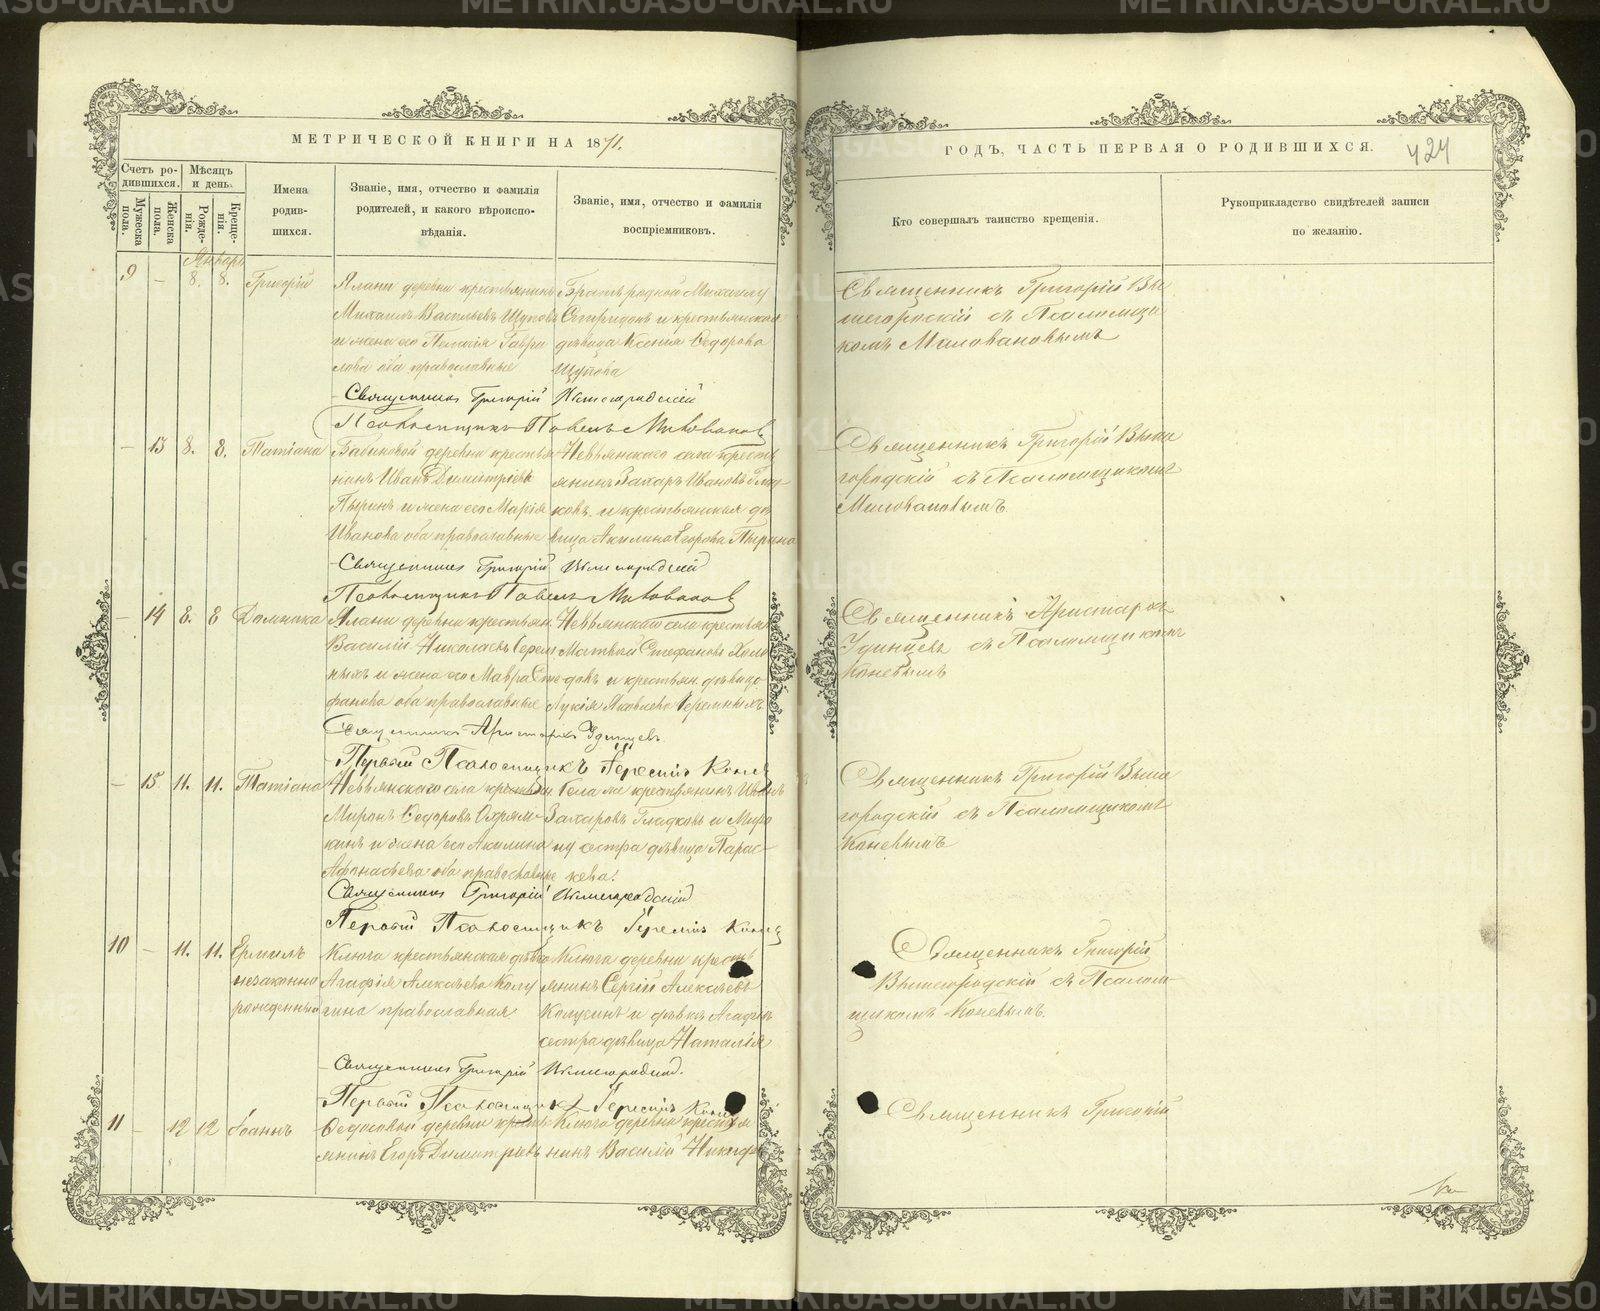 МЕТРИЧЕСКОЙ КНИГИ НА 1871.
Счетъ ро-
дившихся.
Мѣсяцъ
и день.
Мужеска
пола.
Женска
пола.
Рожде-
нія.
Креще-
нія.
Имена
родив-
шихся.
Званіе, имя, отчество и фамилія
родителей, и какого вѣроиспо-
вѣданія.
Званіе, имя, отчество и фамилія
воспріемниковъ.
Январь
9 — 8. 8. Григорій
Ялани деревни крестьянинъ
Михаилъ Васильевъ Щуповъ
и жена его Пелагія Гаври
лова оба православные
Братъ родной Михаилу
Спиридонъ и крестьянская
дѣвица Ксенія Ѳедорова
Щупова
Священникъ Григорій Вышегородскій
Псаломщикъ Павелъ Миловановъ
— 13 8. 8. Татіана
Бабиновой деревни крестья
нинъ Иванъ Димитріевъ
Пыринъ и жена его Марія
Иванова оба православные
Невьянскаго села кресть
янинъ Захаръ Ивановъ Глад
ковъ и крестьянская дѣ
вица Акилина Егорова Пырина
Священникъ Григорій Вышегородскій
Псаломщикъ Павелъ Миловановъ
— 14 8. 8 Домника
Ялани деревни крестьян
Василій Николаевъ Серем
ныхъ и жена его Мавра Сте
фанова оба православные
Невьянскаго села крестьян
Матвей Стефановъ Холо
довъ и крестьян. дѣвица
Лукія Яковлева Серемныхъ
Священникъ Аристархъ Удинцевъ
Первый Псаломщикъ Іеремій Коневъ
— 15 11. 11. Татіана
Невьянскаго села крестьян
Миронъ Ѳедоровъ Охрям-
кинъ и жена его Акилина
Афонасьева оба православные
Села же крестьянинъ Иванъ
Захаровъ Гладковъ и Миро
ну сестра дѣвица Парас-
кева.
Священникъ Григорій Вышегородскій
Первый Псаломщикъ Іеремій Коневъ
10 — 11. 11. Ермилъ
незаконно
рожденный
Ключа крестьянская дѣвка
Агафія Алексѣева Колу
гина православная
Ключа деревни кресть
янинъ Сергій Алексѣевъ
и дѣвки Агафіи
сестра дѣвица Наталія
Священникъ Григорій Вышегородскій.
Первый Псаломщикъ Іеремій Коневъ
11 — 12 12 Іоаннъ
деревни кресть
янинъ Егоръ Димитріевъ
Ключа деревни крестья
нинъ Василій Никифо
ГОДЪ, ЧАСТЬ ПЕРВАЯ О РОДИВШИХСЯ.
424
Кто совершалъ таинство крещенія.
Рукоприкладство свидѣтелей записи
по желанію.
Священникъ Григорій Вы
шегородскій съ Псаломщи
комъ Миловановымъ
Священникъ Григорій Выше
городскій съ Псаломщикомъ
Миловановымъ
Священникъ Аристархъ
Удинцевъ съ Псаломщикомъ
Коневымъ
Священникъ Григорій Выше
городскій съ Псаломщикомъ
Коневымъ
Священникъ Григорій
Вышегородскій съ Псалом
щикомъ Коневымъ.
Священникъ Григорій
METRIKI.GASO-URAL.RU